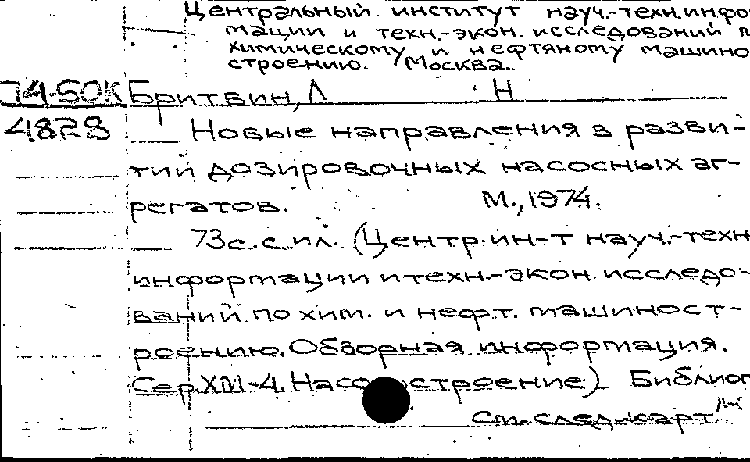 Центральный институт науч.-техн.инфо
мации и техн.-экон.исследований п
химическому и нефтяному машино
строению. Москва.
74-50К Бритвин, Л Н
4828 Новые направления в разви-
тии дозировочных насосных аг-
регатов. М., 1974.
73с. с ил. (Центр.ин-т науч.-техн
информации и техн.-экон. исследо-
ваний по хим. и нефт. машиност-
роению. Обзорная информация.
Сер.XM-4. Насосостроение). Библиог
См. след. карт